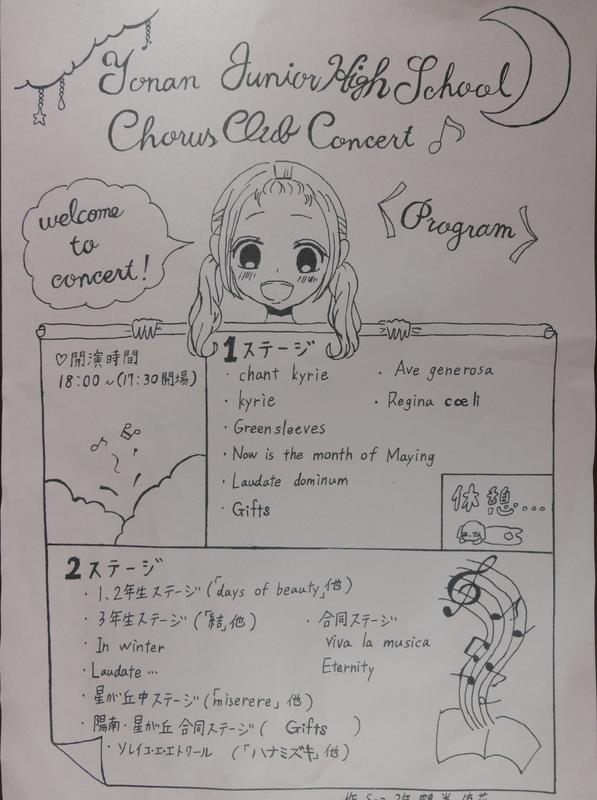 Yonan Junior High School
Chorus Club Concert
welcome
to
concert!
Program
♡開演時間
18:00~(17:30開場)
1ステージ
・chant kyrie
・kyrie
・Greensleeves
・Now is the month of Maying
・Laudate dominum
・Gifts
・Ave generosa
・Regina cœli
休憩...
2ステージ
・1、2年生ステージ(「days of beauty」他)
・3年生ステージ(「結」他)
・In winter
・Laudate …
・星が丘中ステージ(「miserere」他)
・陽南・星が丘 合同ステージ( Gifts )
・ソレイユ・エ・エトワール (「ハナミズキ」他)
・合同ステージ
viva la musica
Eternity